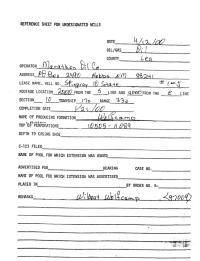 REFERENCE SHEET FOR UNDESIGNATED WELLS
DATE 4/12/00
OIL/GAS Oil
COUNTY Lea
OPERATOR Marathon Oil Co
ADDRESS PO Box 2490 Hobbs NM 88241
LEASE NAME, WELL NO. Stingray 10 State #1-J
FOOTAGE LOCATION 2000 FROM THE S LINE AND 2000 FROM THE E LINE
SECTION 10 TOWNSHIP 17S RANGE 33E
COMPLETION DATE 1/21/00
NAME OF PRODUCING FORMATION Wolfcamp
TOP OF PERFORATIONS 10505-11089
DEPTH TO CASING SHOE
C-123 FILED
NAME OF POOL FOR WHICH EXTENSION WAS ASKED
ADVERTISED FOR HEARING CASE NO.
NAME OF POOL FOR WHICH EXTENSION WAS ADVERTISED
PLACED IN BY ORDER NO. R-
REMARKS Wolfcamp